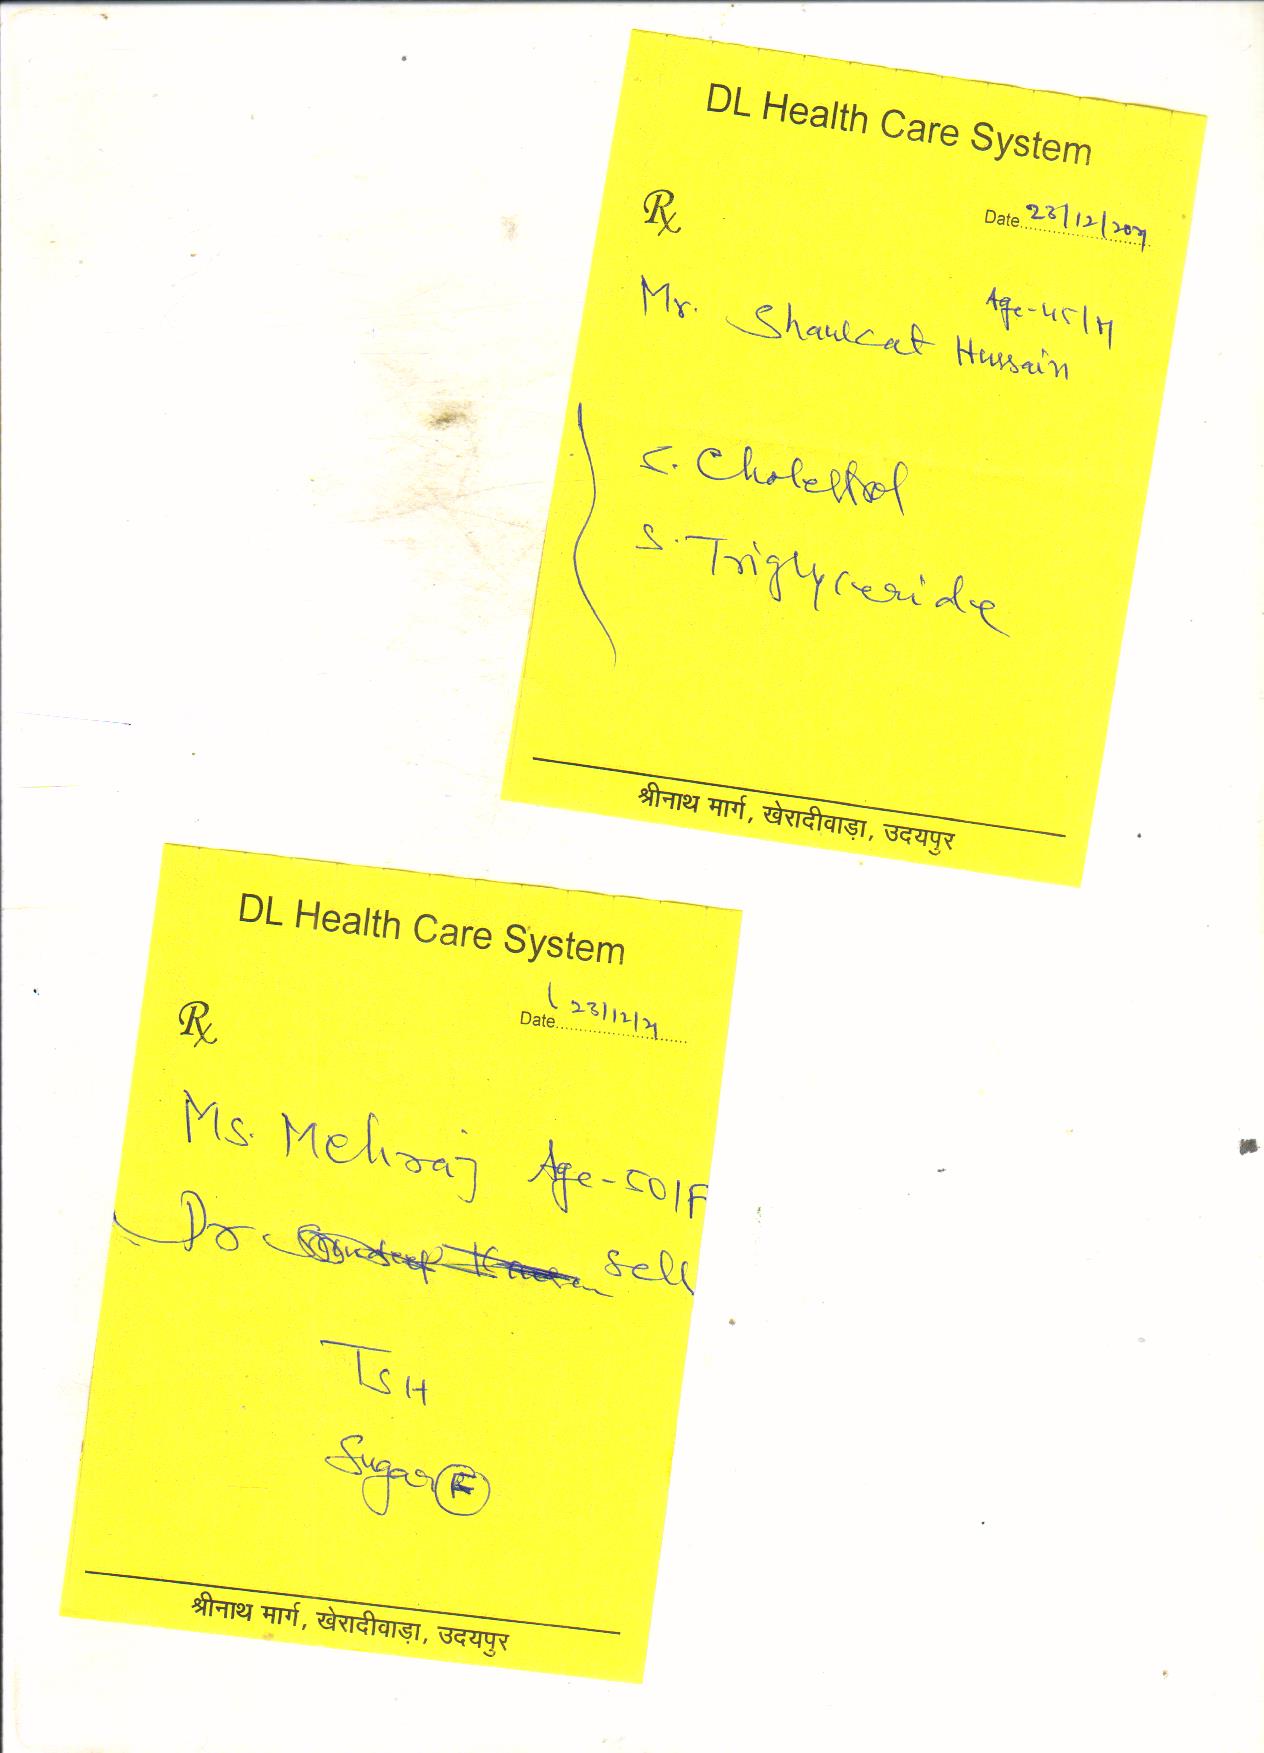 DL Health Care System
Rx
Date 23/12/2021
Age-45/M
Mr. Shaukat Hussain
S. Cholestrol
S. Triglyceride
श्रीनाथ मार्ग, खेरादीवाड़ा, उदयपुर
DL Health Care System
Rx
Date 23/12/21
Ms. Mehraj Age-50/F
Dr Self
TSH
Sugar F
श्रीनाथ मार्ग, खेरादीवाड़ा, उदयपुर